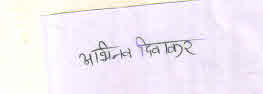 अभिनव दिवाकर